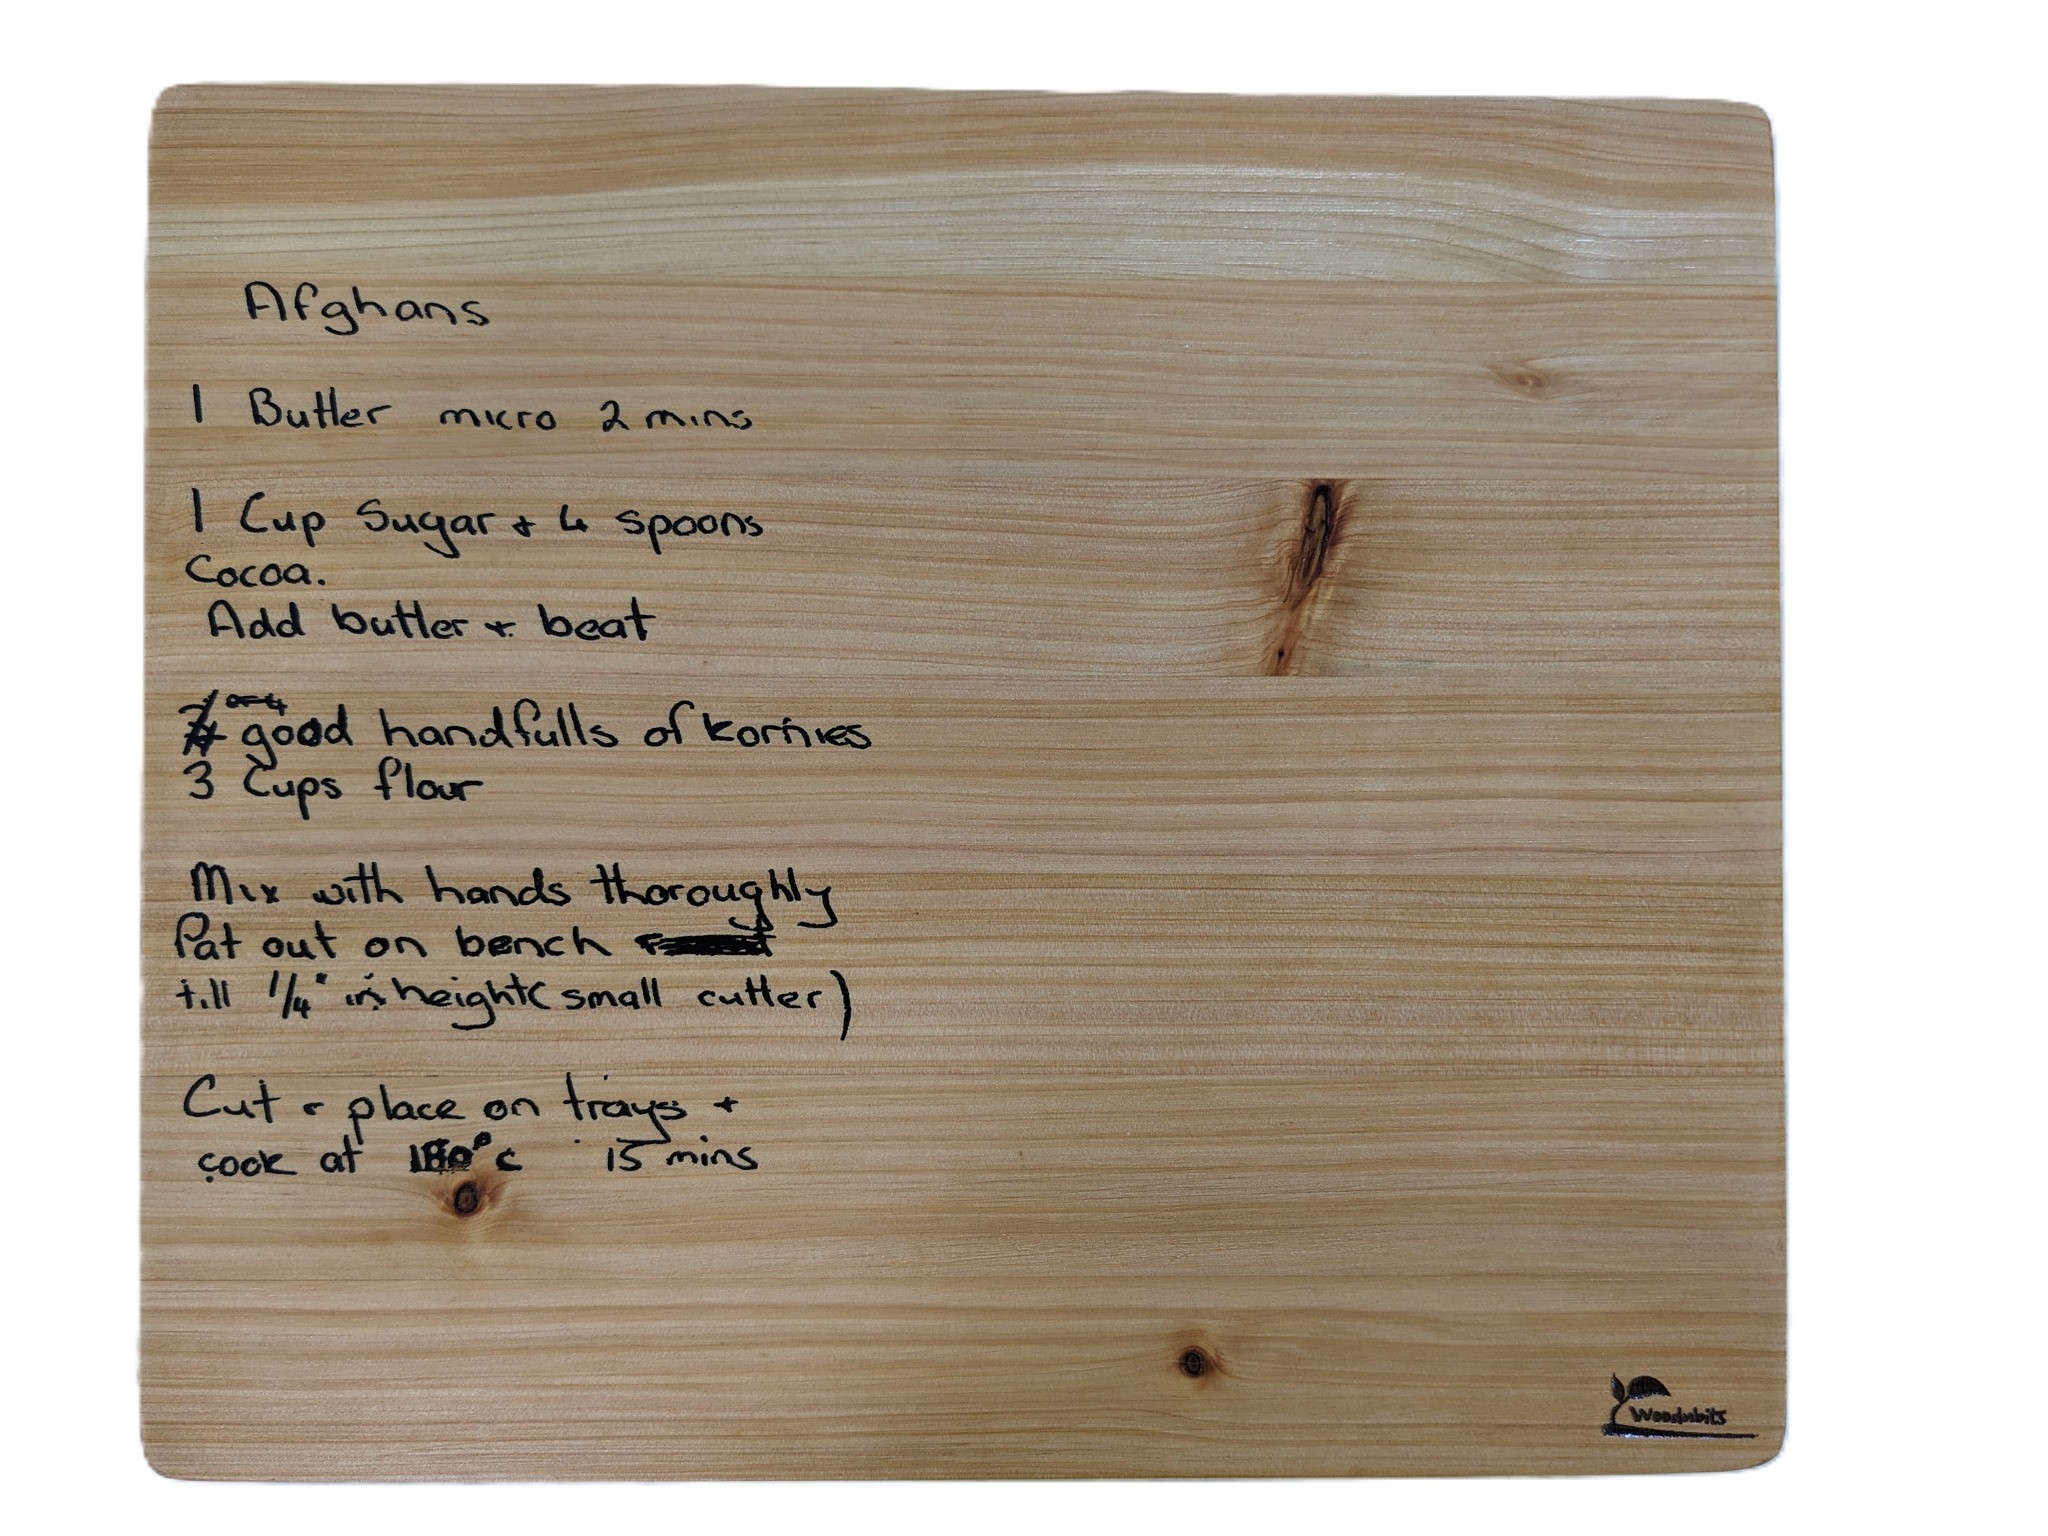 Afghans
1 Butter micro 2 mins
1 Cup Sugar + 4 spoons
Cocoa.
Add butter + beat
or 4
good handfulls of Kornies
3 Cups flour
Mix with hands thoroughly
Pat out on bench
till 1/4" in height (small cutter)
Cut + place on trays +
cook at 180°c 15 mins
Woodnbits